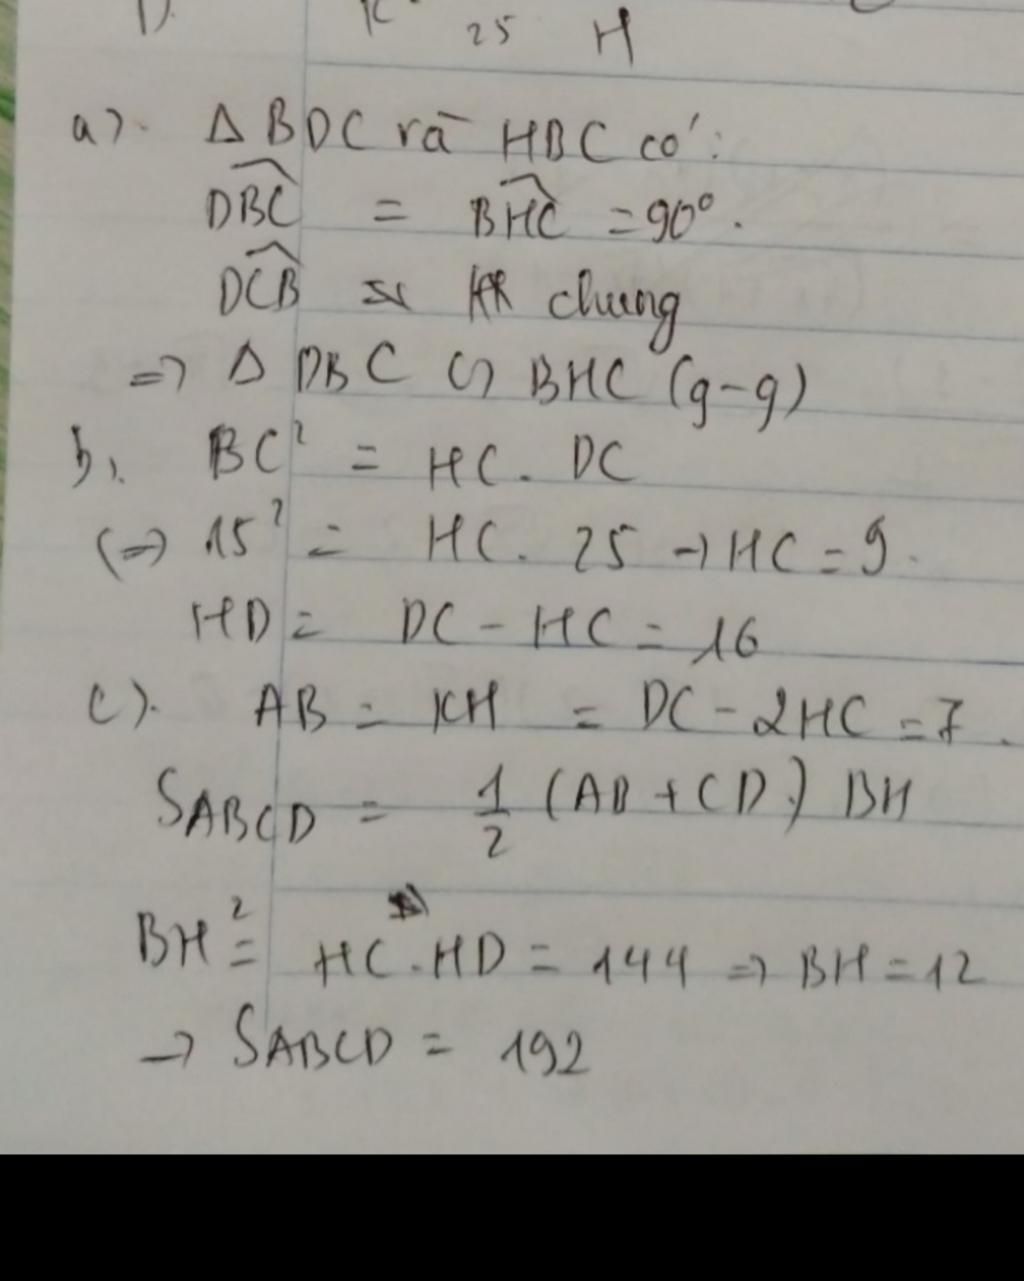 25 H
a). Δ BDC và HBC có:
DBC = BHC = 90°.
DCB chung
=> Δ DBC ∽ BHC (g-g)
b). BC² = HC. DC
(=) 15² = HC. 25 → HC = 9.
HD = DC - HC = 16
c). AB = KH = DC - 2HC = 7.
SABCD = 1/2 (AB + CD) BH
BH² = HC.HD = 144 => BH = 12
→ SABCD = 192